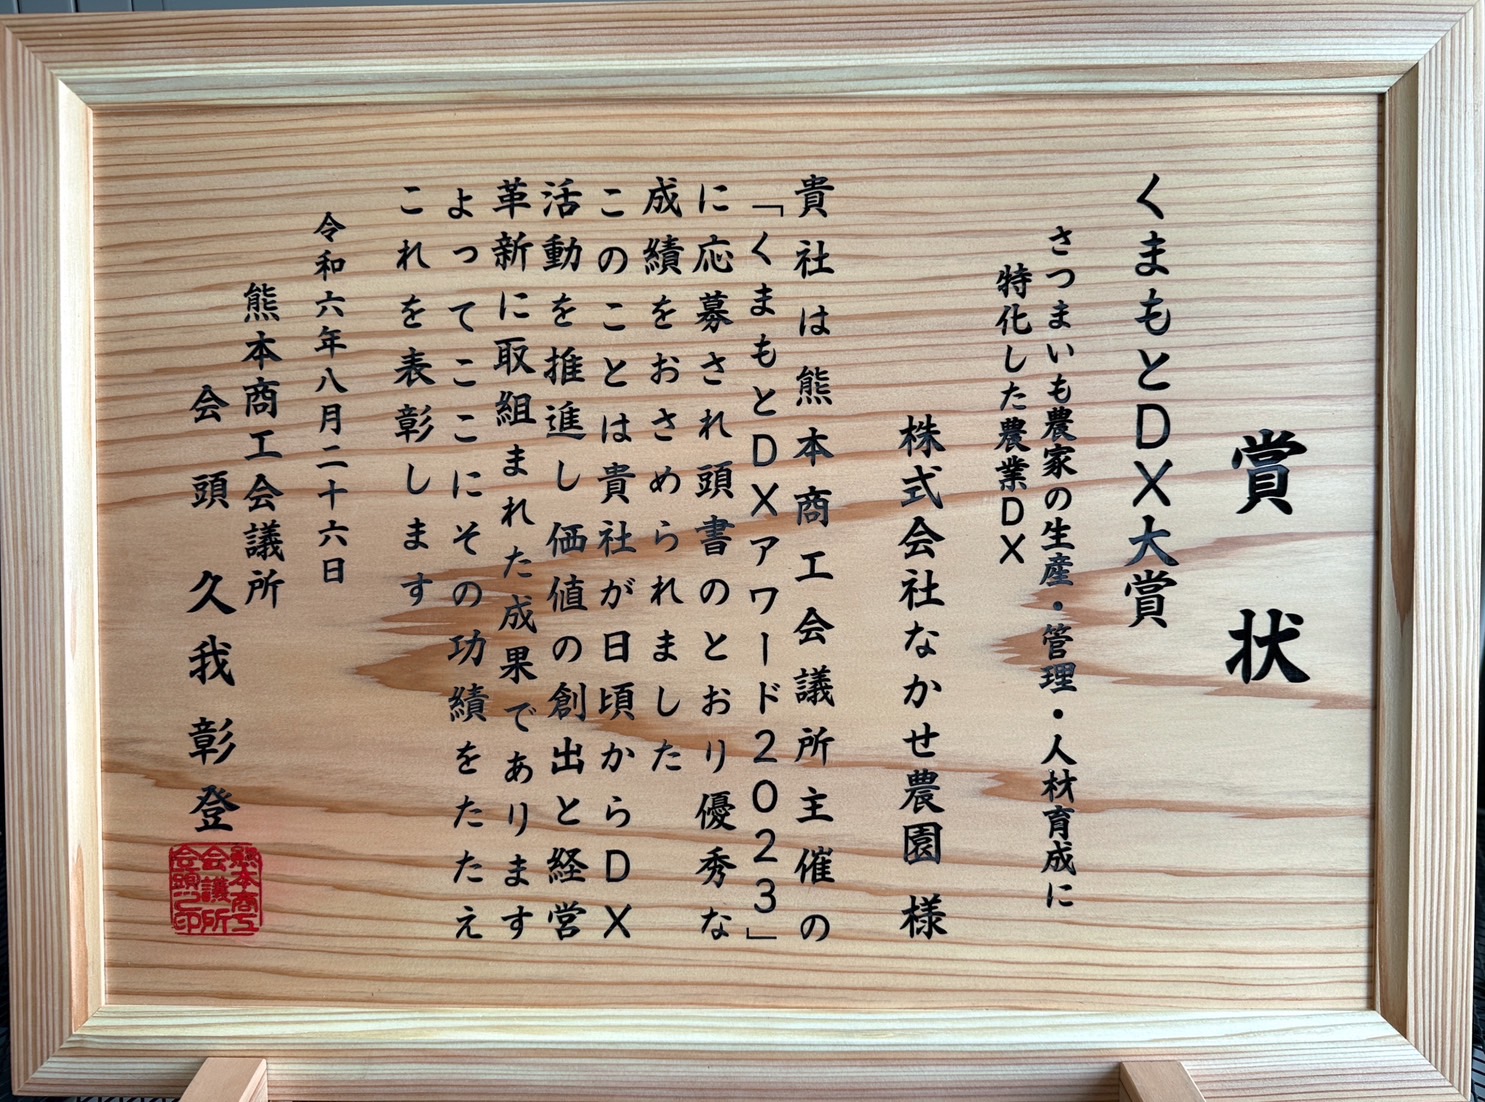 賞状
くまもとDX大賞
さつまいも農家の生産・管理・人材育成に
特化した農業DX
株式会社なかせ農園 様
貴社は熊本商工会議所主催の
「くまもとDXアワード2023」
に応募され頭書のとおり優秀な
成績をおさめられました
このことは貴社が日頃からDX
活動を推進し価値の創出と経営
革新に取組まれた成果であります
よってここにその功績をたたえ
これを表彰します
令和六年八月二十六日
熊本商工会議所
会頭 久我彰登
熊本商工
会議所
会頭之印